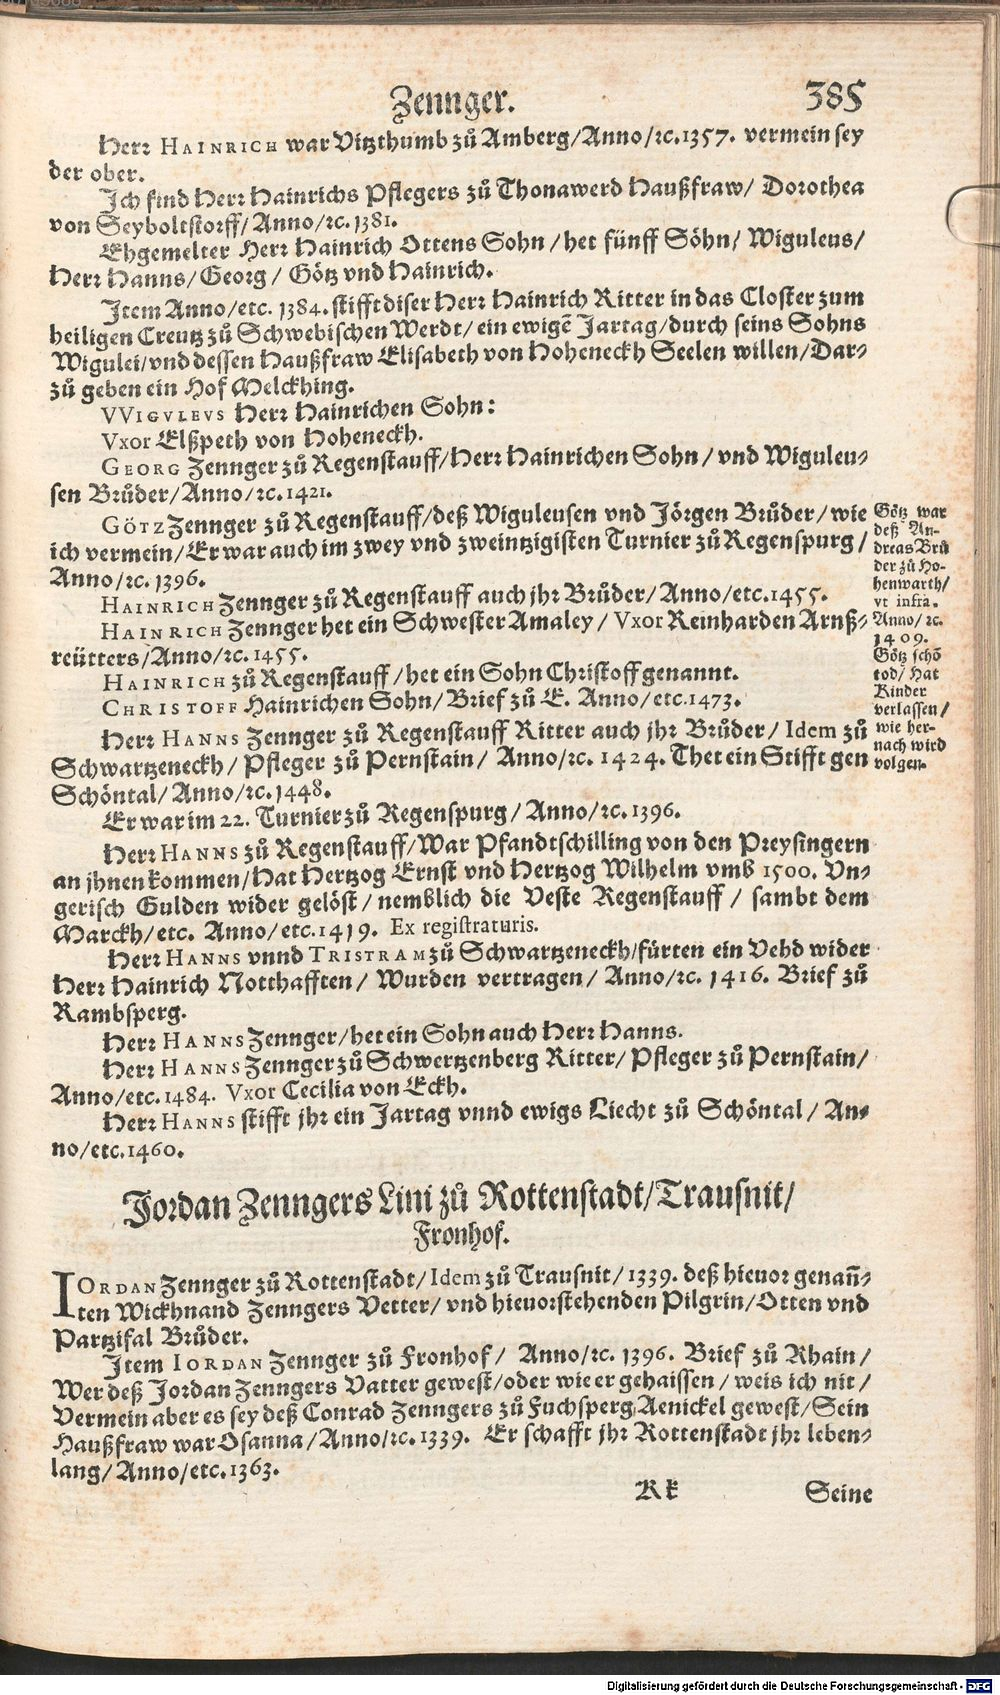 Zennger.
385
Herr HAINRICH war Vitzthumb zů Amberg/Anno/ꝛc.1357. vermein sey
der ober.
Ich find Herr Hainrichs Pflegers zů Thonawerd Haußfraw/ Dorothea
von Seyboltstorff/Anno/ꝛc.1381.
Ehgemelter Herr Hainrich Ottens Sohn/het fünff Söhn/ Wiguleus/
Herr Hanns/Georg/ Götz vnd Hainrich.
Item Anno/etc. 1384. stifft diser Herr Hainrich Ritter in das Closter zum
heiligen Creutz zů Schwebischen Werdt/ein ewigē Jartag/durch seins Sohns
Wigulei/vnd dessen Haußfraw Elisabeth von Hoheneckh Seelen willen/Dar-
zů geben ein Hof Melckhing.
VVIGVLEVS Herr Hainrichen Sohn:
Vxor Elßpeth von Hoheneckh.
GEORG Zennger zů Regenstauff/Herr Hainrichen Sohn/ vnd Wiguleu-
sen Brůder/Anno/ꝛc.1421.
GÖTZ Zennger zů Regenstauff/deß Wiguleusen vnd Jörgen Brůder/wie
ich vermein/Er war auch im zwey vnd zweintzigisten Turnier zů Regenspurg/
Anno/ꝛc.1396.
HAINRICH Zennger zů Regenstauff auch jhr Brůder/Anno/etc.1455.
HAINRICH Zennger het ein Schwester Amaley/ Vxor Reinharden Arnß-
reütters/Anno/ꝛc.1455.
HAINRICH zů Regenstauff/het ein Sohn Christoff genannt.
CHRISTOFF Hainrichen Sohn/Brief zů E. Anno/etc.1473.
Herr HANNS Zennger zů Regenstauff Ritter auch jhr Brůder/ Idem zů
Schwartzeneckh/ Pfleger zů Pernstain/ Anno/ꝛc. 1424. Thet ein Stifft gen
Schöntal/Anno/ꝛc.1448.
Er war im 22. Turnier zů Regenspurg/Anno/ꝛc.1396.
Herr HANNS zů Regenstauff/War Pfandtschilling von den Preysingern
an jhnen kommen/Hat Hertzog Ernst vnd Hertzog Wilhelm vmb 1500. Vn-
gerisch Gulden wider gelöst/nemblich die Veste Regenstauff/ sambt dem
Marckh/etc. Anno/etc.1419. Ex registraturis.
Herr HANNS vnnd TRISTRAM zů Schwartzeneckh/fürten ein Vehd wider
Herr Hainrich Notthafften/ Wurden vertragen/ Anno/ꝛc. 1416. Brief zů
Rambsperg.
Herr HANNS Zennger/het ein Sohn auch Herr Hanns.
Herr HANNS Zennger zů Schwertzenberg Ritter/ Pfleger zů Pernstain/
Anno/etc.1484. Vxor Cecilia von Eckh.
Herr HANNS stifft jhr ein Jartag vnnd ewigs Liecht zů Schöntal/ An-
no/etc.1460.
Götz war
deß An-
dreas Brů
der zů Ho-
henwarth/
vt infra.
Anno/ꝛc.
1409.
Götz schō
tod/ Hat
Kinder
verlassen/
wie her-
nach wird
volgen.
Jordan Zenngers Lini zů Rottenstadt/Trausnit/
Fronhof.
IORDAN Zennger zů Rottenstadt/Idem zů Trausnit/1339. deß hieuor genañ-
ten Wickhnand Zenngers Vetter/ vnd hieuorstehenden Pilgrin/Otten vnd
Partzifal Brůder.
Item IORDAN Zennger zů Fronhof/ Anno/ꝛc. 1396. Brief zů Rhain/
Wer deß Jordan Zenngers Vatter gewest/oder wie er gehaissen/weis ich nit/
Vermein aber es sey deß Conrad Zenngers zů Fuchsperg Aenickel gewest/Sein
Haußfraw war Osanna/Anno/ꝛc.1339. Er schafft jhr Rottenstadt jhr leben-
lang/Anno/etc.1363.
Kk
Seine
Digitalisierung gefördert durch die Deutsche Forschungsgemeinschaft - DFG